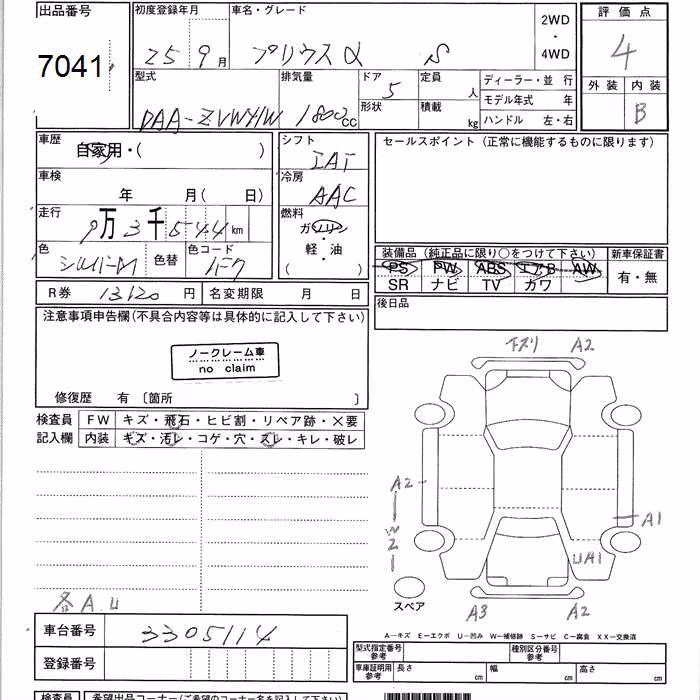 出品番号 初度登録年月 車名・グレード 2WD ・ 4WD 評価点
7041 25 9月 プリウスα S 4
型式 排気量 ドア 5 定員 人 ディーラー・並 行 外装 内装
DAA-ZVW41W 1800cc 形状 積載 kg モデル年式 年 B
ハンドル 左・右
車歴 自家用・( ) シフト IAT セールスポイント(正常に機能するものに限ります)
車検 年 月( 日) 冷房 AAC
走行 9万3千544km 燃料 ガソリン・軽・油 ( )
色 シルバーM 色替 色コード 装備品(純正品に限り○をつけて下さい) 新車保証書
PS PW ABS エアB AW 有・無
SR ナビ TV カワ
R券 13120円 名変期限 月 日 後日品
注意事項申告欄(不具合内容等は具体的に記入して下さい)
ノークレーム車
no claim
修復歴 有〔箇所 〕
下ズリ A2
検査員 FW キズ・飛石・ヒビ割・リペア跡・×要
記入欄 内装 キズ・汚レ・コゲ・穴・スレ・キレ・破レ
A2
W2
A1
UA1
スペア
A3 A2
各A.U
A-キズ E-エクボ U-凹み W-補修跡 S-サビ C-腐食 XX-交換済
車台番号 3305114
登録番号
型式指定番号 参考 種別区分番号 参考
車庫証明用 参考 長さ cm 幅 cm 高さ cm
検査員 希望出品コーナー(ご希望のコーナー名を記入下さい)